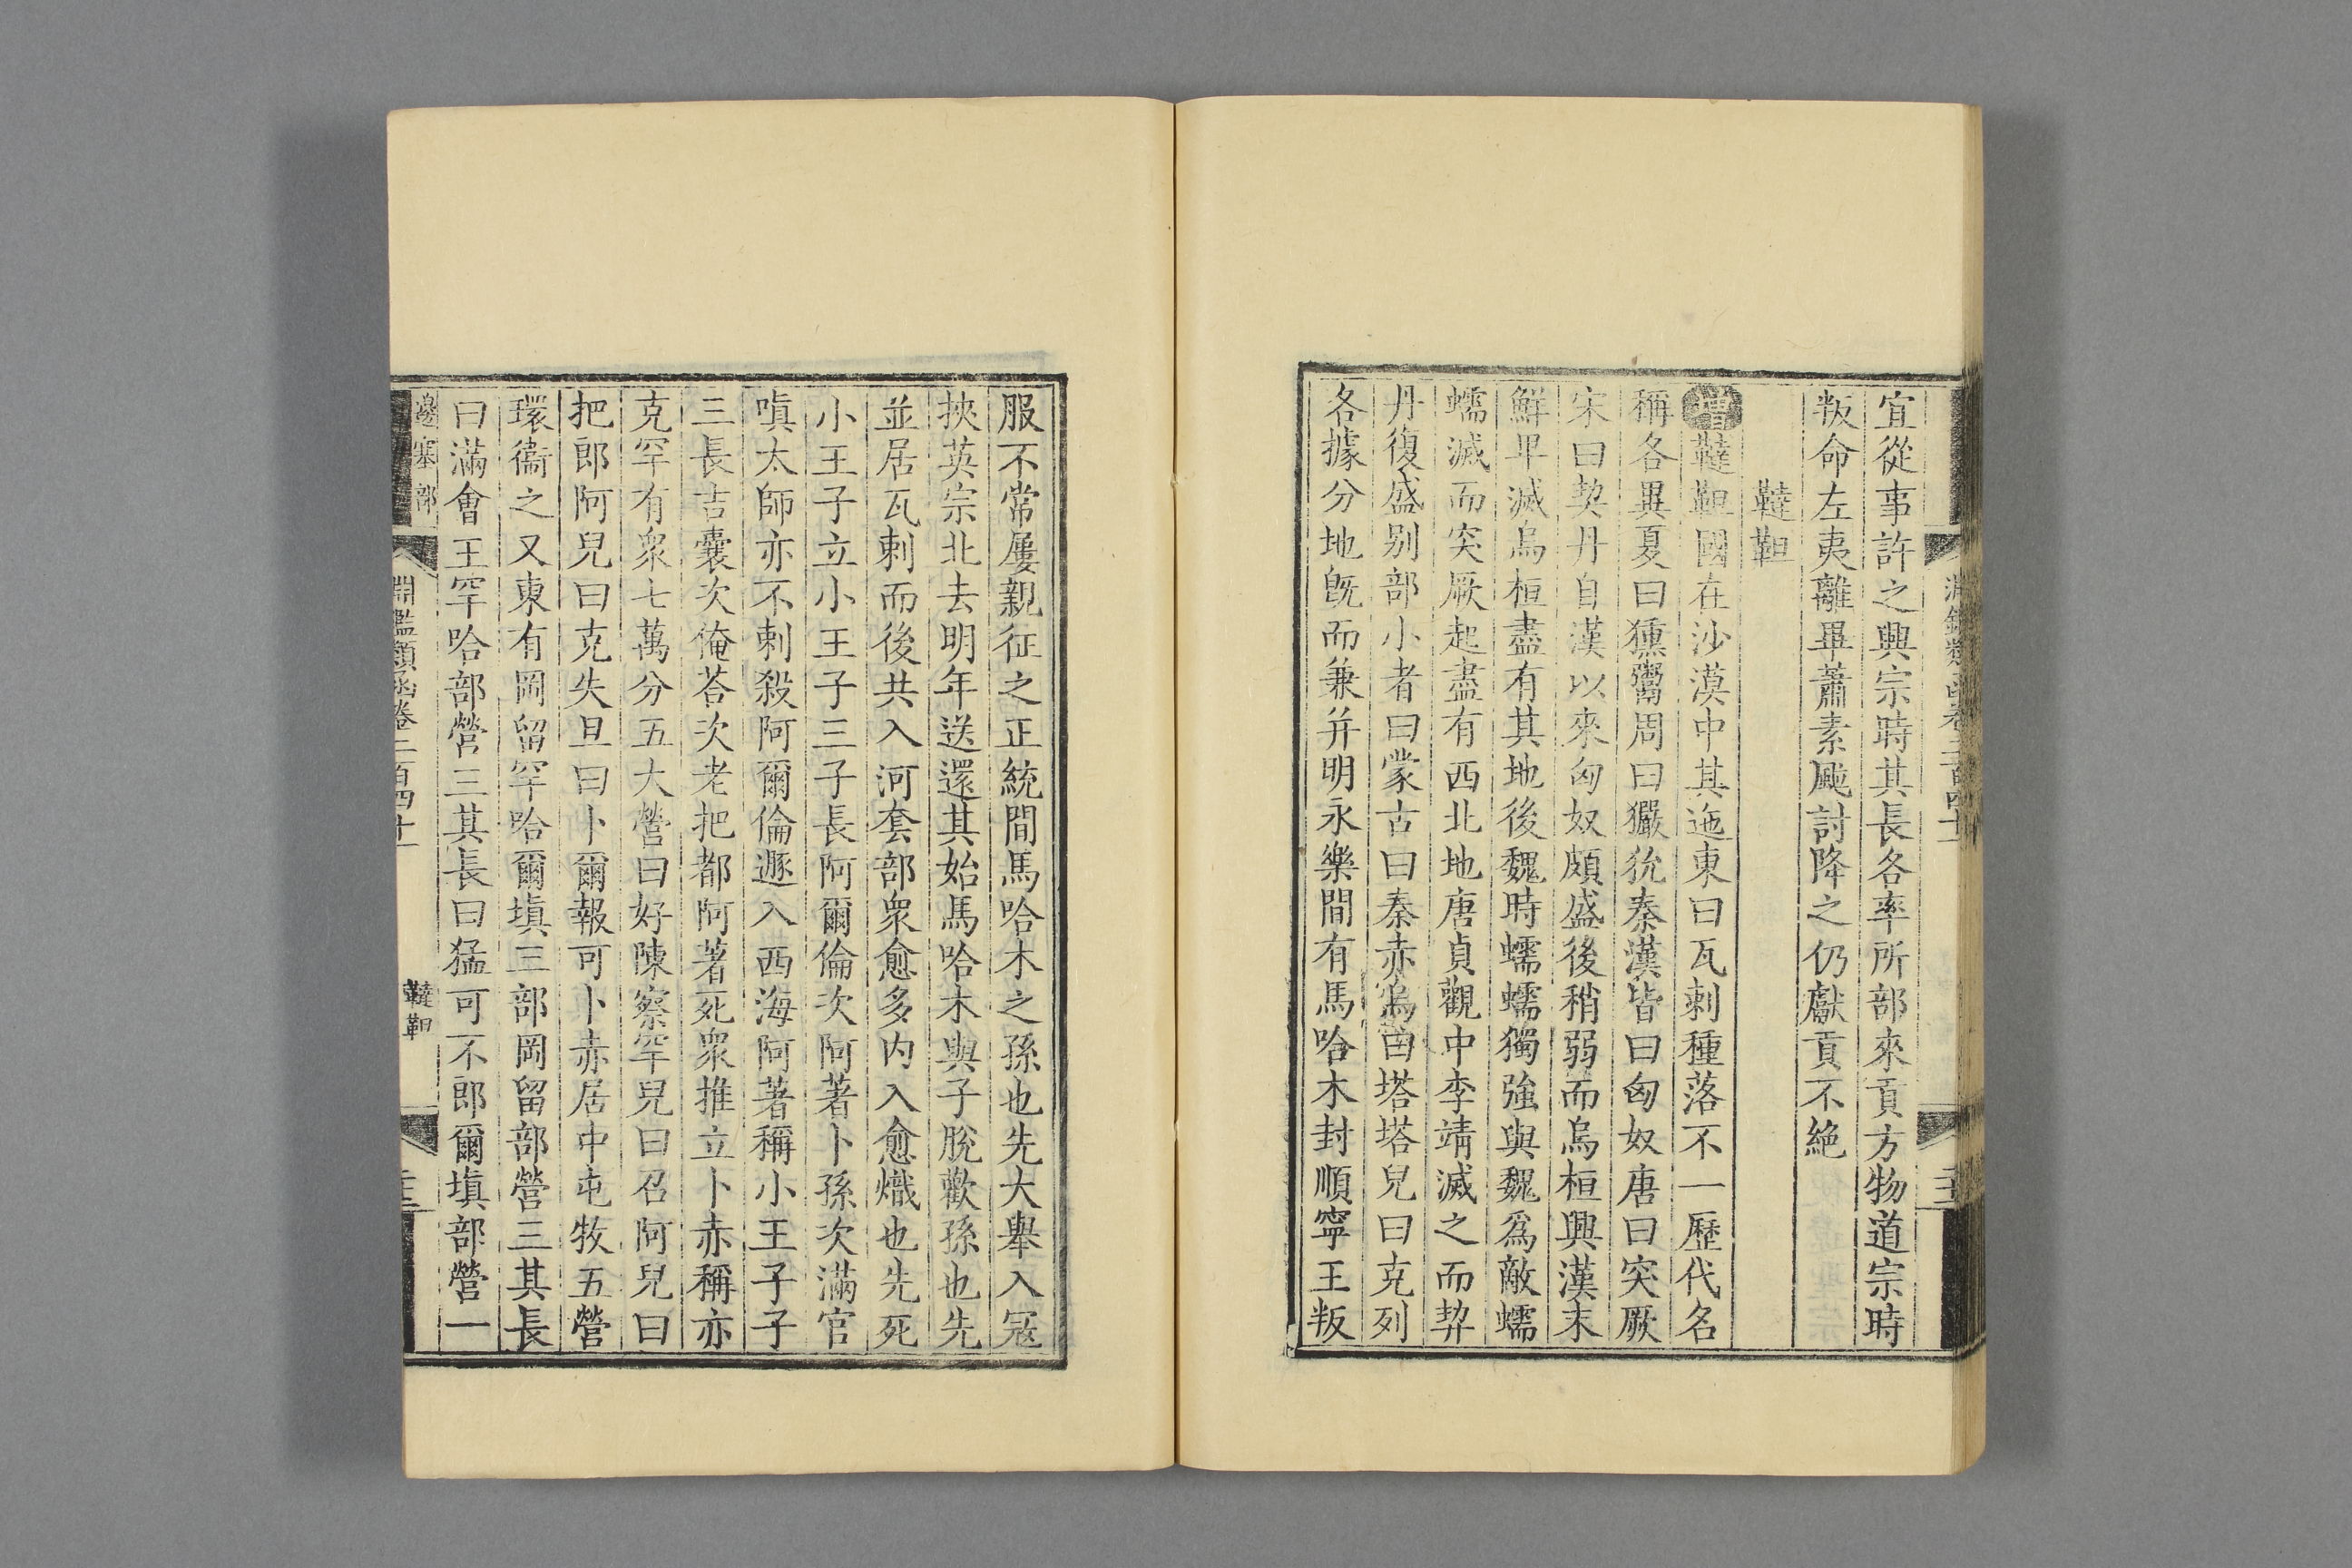 宜從事許之興宗時其長各率所部來貢方物道宗時
叛命左夷離畢蕭素颭討降之仍獻貢不絶
韃靼
增韃靼國在沙漠中其迤東曰瓦剌種落不一歷代名
稱各異夏曰獯鬻周曰玁狁秦漢皆曰匈奴唐曰突厥
宋曰契丹自漢以來匈奴頗盛後稍弱而烏桓興漢末
鮮卑滅烏桓盡有其地後魏時蠕蠕獨強與魏爲敵蠕
蠕滅而突厥起盡有西北地唐貞觀中李靖滅之而契
丹復盛别部小者曰蒙古曰秦赤烏曰塔塔兒曰克列
各據分地旣而兼并明永樂間有馬哈木封順寧王叛
服不常屢親征之正統間馬哈木之孫也先大舉入寇
挾英宗北去明年送還其始馬哈木與子脫歡孫也先
並居瓦剌而後共入河套部衆愈多内入愈熾也先死
小王子立小王子三子長阿爾倫次阿著卜孫次滿官
嗔太師亦不剌殺阿爾倫遯入西海阿著稱小王子子
三長吉囊次俺荅次老把都阿著死衆推立卜赤稱亦
克罕有衆七萬分五大營曰好陳察罕兒曰召阿兒曰
把郎阿兒曰克失旦曰卜爾報可卜赤居中屯牧五營
環衞之又東有岡留罕哈爾塡三部岡留部營三其長
曰滿會王罕哈部營三其長曰猛可不郎爾塡部營一
邊塞部
淵鑑類函卷二百四十一
韃靼